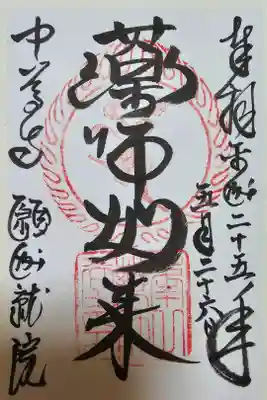 奉拝 平成二十五年
五月二十六日
藥師如来
中尊寺 願成就院